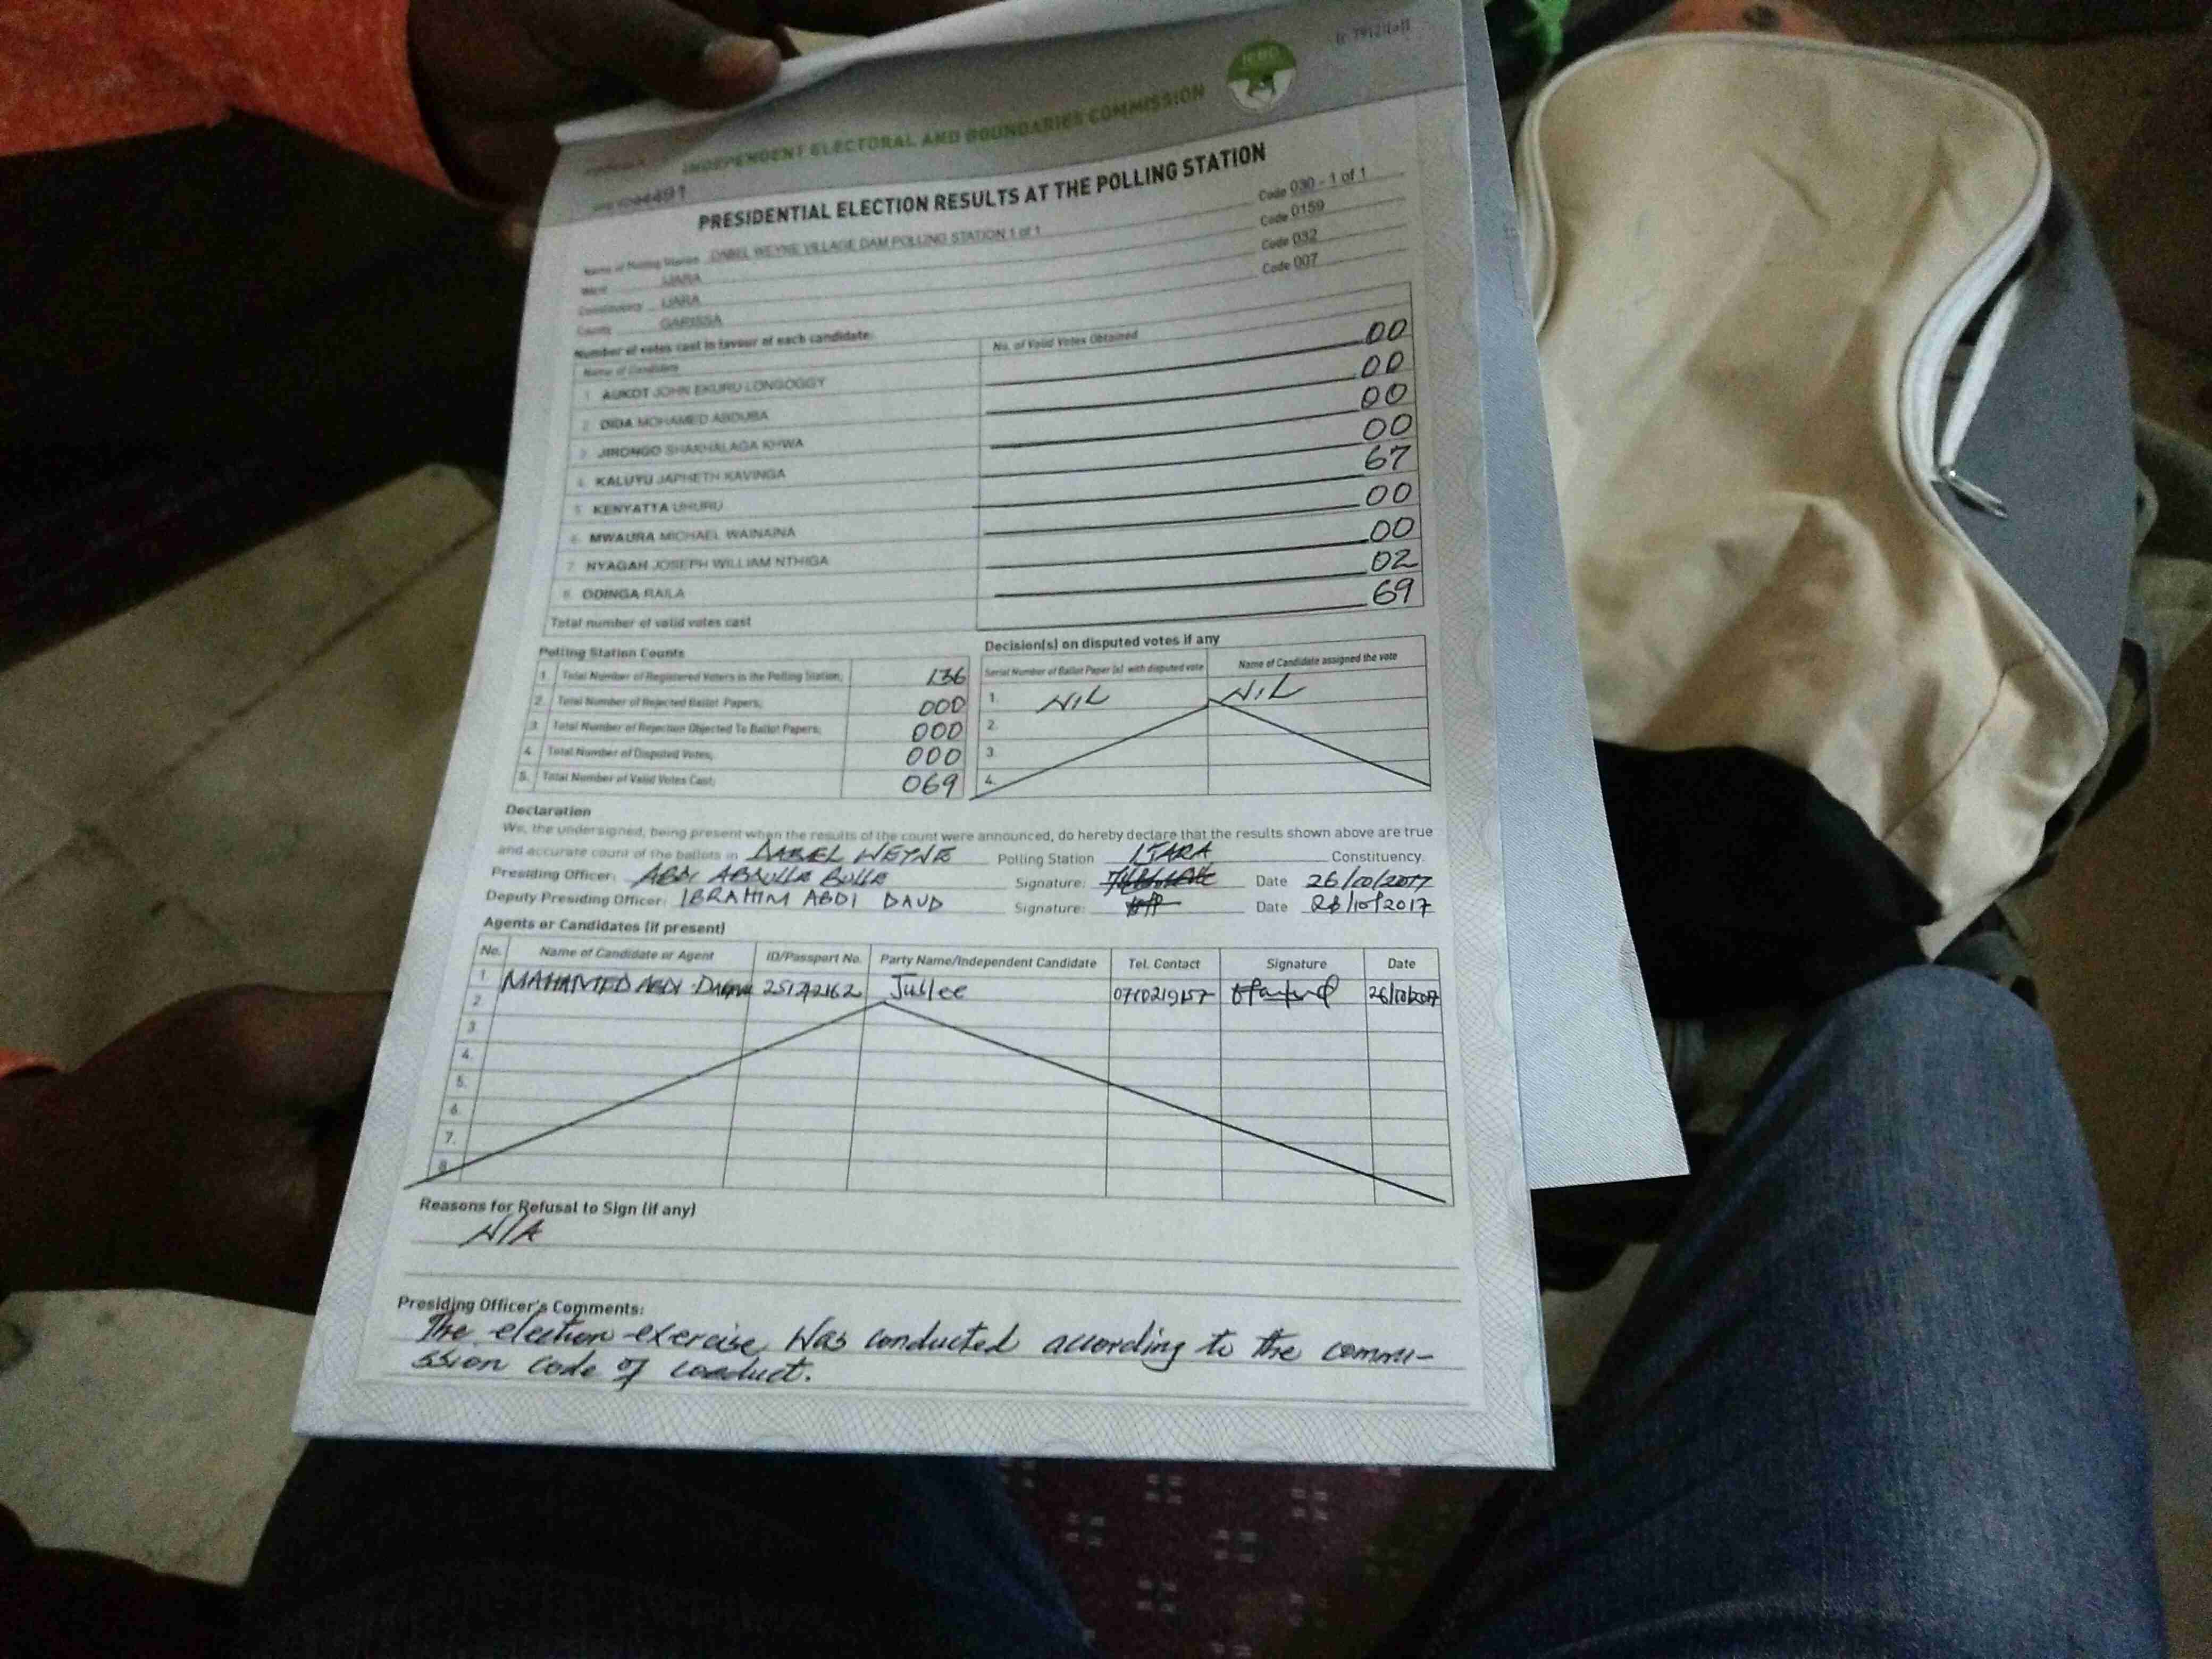 r. 79(2)(a)
IEBC
INDEPENDENT ELECTORAL AND BOUNDARIES COMMISSION
PRESIDENTIAL ELECTION RESULTS AT THE POLLING STATION
Name of Polling Station DABEL WEYNE VILLAGE DAM POLLING STATION 1 of 1 Code 030 - 1 of 1
Ward IJARA Code 0159
Constituency IJARA Code 032
County GARISSA Code 007
Number of votes cast in favour of each candidate:
Name of Candidate No. of Valid Votes Obtained
1. AUKOT JOHN EKURU LONGOGGY 00
2. DIDA MOHAMED ABDUBA 00
3. JIRONGO SHAKHALAGA KHWA 00
4. KALUYU JAPHETH KAVINGA 00
5. KENYATTA UHURU 67
6. MWAURA MICHAEL WAINAINA 00
7. NYAGAH JOSEPH WILLIAM NTHIGA 00
8. ODINGA RAILA 02
Total number of valid votes cast 69
Polling Station Counts
1. Total Number of Registered Voters in the Polling Station; 136
2. Total Number of Rejected Ballot Papers; 000
3. Total Number of Rejection Objected To Ballot Papers; 000
4. Total Number of Disputed Votes; 000
5. Total Number of Valid Votes Cast; 069
Decision(s) on disputed votes if any
Serial Number of Ballot Paper (s) with disputed vote Name of Candidate assigned the vote
1. NIL NIL
2.
3.
4.
Declaration
We, the undersigned, being present when the results of the count were announced, do hereby declare that the results shown above are true
and accurate count of the ballots in DABEL WEYNE Polling Station IJARA Constituency.
Presiding Officer: ABDI ABDULLE BULLE Signature: Date 26/10/2017
Deputy Presiding Officer: IBRAHIM ABDI DAUD Signature: Date 26/10/2017
Agents or Candidates (if present)
No. Name of Candidate or Agent ID/Passport No. Party Name/Independent Candidate Tel. Contact Signature Date
1. MAHAMED ABDI Jubilee 26/10/2017
2.
3.
4.
5.
6.
7.
8.
Reasons for Refusal to Sign (if any)
N/A
Presiding Officer's Comments:
The election exercise was conducted according to the commi-
ssion code of conduct.